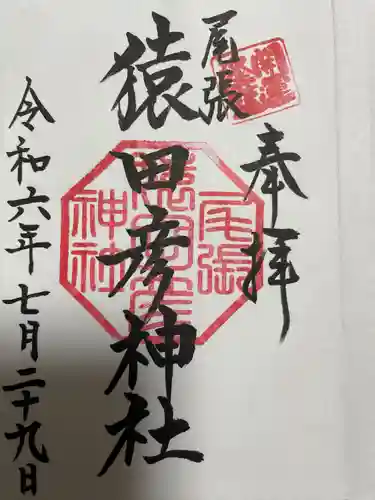 奉拝
尾張
猿田彦神社
令和六年七月二十九日
尾張
猿田彦
神社